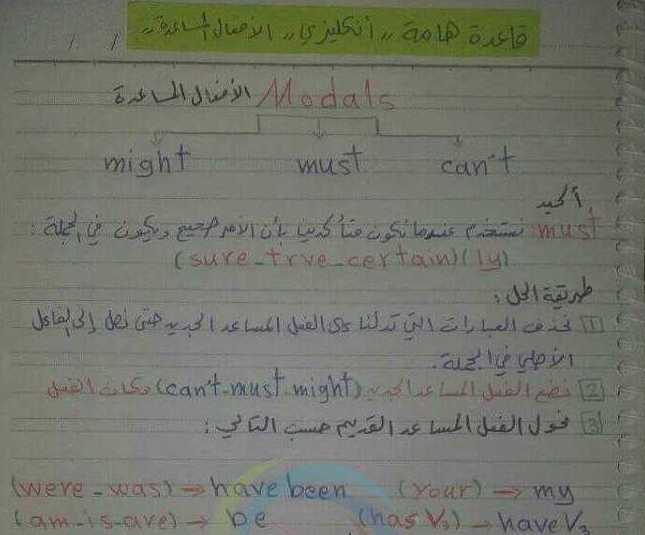 قاعدة هامة ,, أنكليزي ,, الأفعال المساعدة ,,
/ /
Modals الأفعال المساعدة
might must can't
أكيد
must: نستخدم عندما نكون متأكدين بأن الأمر صحيح ويكون في الجملة :
(sure_true_certain)(ly)
طريقة الحل :
1 نحذف العبارات التي تدلنا على الفعل المساعد الجديد حتى نصل إلى الفاعل
الأصلي في الجملة.
2 نضع الفعل المساعد الجديد (can't-must-might) مكان الفعل
3 نحول الفعل المساعد القديم حسب التالي :
(were_was) → have been (your) → my
(am-is-are) → be (has V3) → have V3